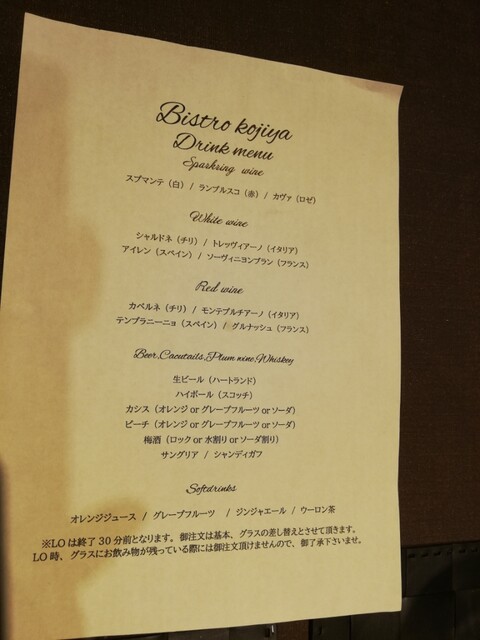 Bistro kojiya
Drink menu
Sparkring wine
スプマンテ（白） / ランブルスコ（赤） / カヴァ（ロゼ）
White wine
シャルドネ（チリ） / トレッヴィアーノ（イタリア）
アイレン（スペイン） / ソーヴィニヨンブラン（フランス）
Red wine
カベルネ（チリ） / モンテプルチアーノ（イタリア）
テンプラニーニョ（スペイン） / グルナッシュ（フランス）
Beer,Cacutails,Plum wine,Whiskey
生ビール（ハートランド）
ハイボール（スコッチ）
カシス（オレンジ or グレープフルーツ or ソーダ）
ピーチ（オレンジ or グレープフルーツ or ソーダ）
梅酒（ロック or 水割り or ソーダ割り）
サングリア / シャンディガフ
Softdrinks
オレンジジュース / グレープフルーツ / ジンジャエール / ウーロン茶
※LO は終了 30 分前となります。御注文は基本、グラスの差し替えとさせて頂きます。
LO 時、グラスにお飲み物が残っている際には御注文頂けませんので、御了承下さいませ。